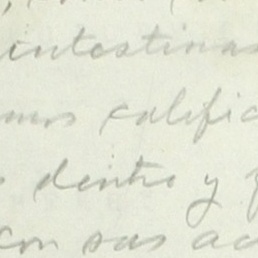 intestinas
mos calific
dentro y
con sus ac